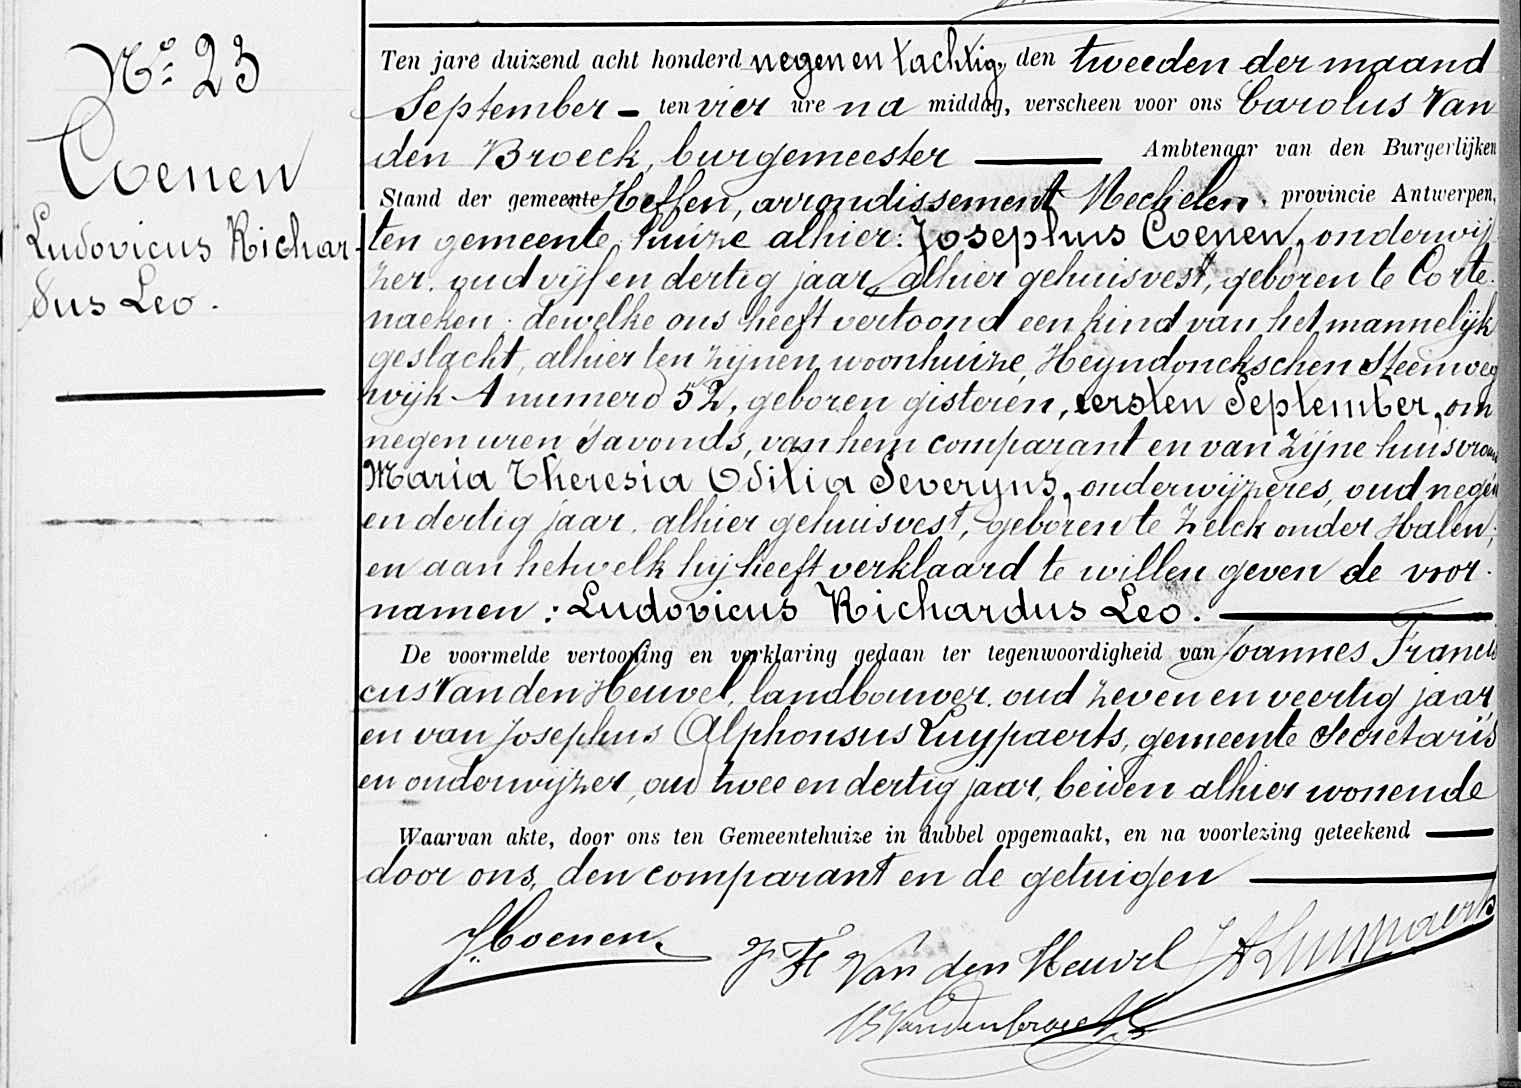 No. 23
Coenen
Ludovicus Richar-
dus Leo.
Ten jare duizend acht honderd negen en tachtig, den tweeden der maand
September - ten vier ure na middag, verscheen voor ons Carolus Van
den Broeck, burgemeester Ambtenaar van den Burgerlijken
Stand der gemeente Heffen, arrondissement Mechelen, provincie Antwerpen,
ten gemeente huize alhier: Josephus Coenen, onderwij
zer, oud vijf en dertig jaar, alhier gehuisvest, geboren te Corte-
naeken; dewelke ons heeft vertoond een kind van het mannelijk
geslacht, alhier ten zijnen woonhuize, Heyndonckschen Steenweg
wijk A numero 52, geboren gisteren, eersten September, om
negen uren 's avonds, van hem comparant en van zijne huisvrouw
Maria Theresia Odilia Severyns, onderwijzeres, oud negen
en dertig jaar, alhier gehuisvest, geboren te Zelck onder Halen;
en aan hetwelk hij heeft verklaard te willen geven de voor-
namen: Ludovicus Richardus Leo.
De voormelde vertooning en verklaring gedaan ter tegenwoordigheid van Joannes Francis
cus Van den Heuvel, landbouwer, oud zeven en veertig jaar,
en van Josephus Alphonsus Luypaerts, gemeente Secretaris
en onderwijzer, oud twee en dertig jaar, beiden alhier wonende
Waarvan akte, door ons ten Gemeentehuize in dubbel opgemaakt, en na voorlezing geteekend
door ons, den comparant en de getuigen
J. Coenen.
J F Van den Heuvel J A Luypaerts
C Vandenbroeck